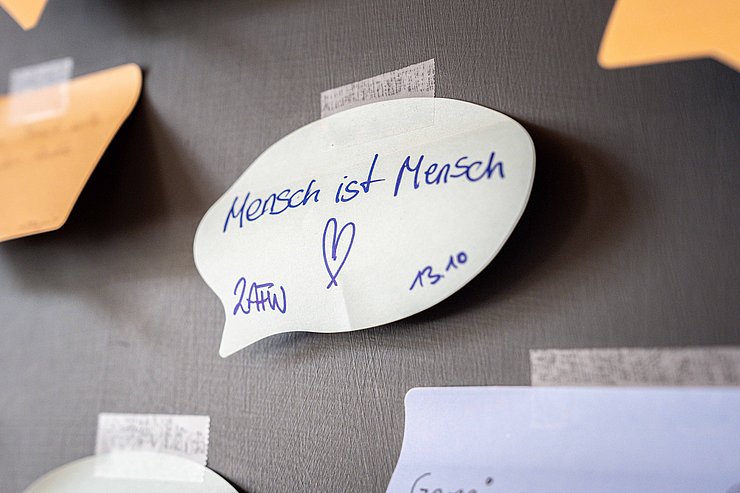 Mensch ist Mensch
2AFW
13.10